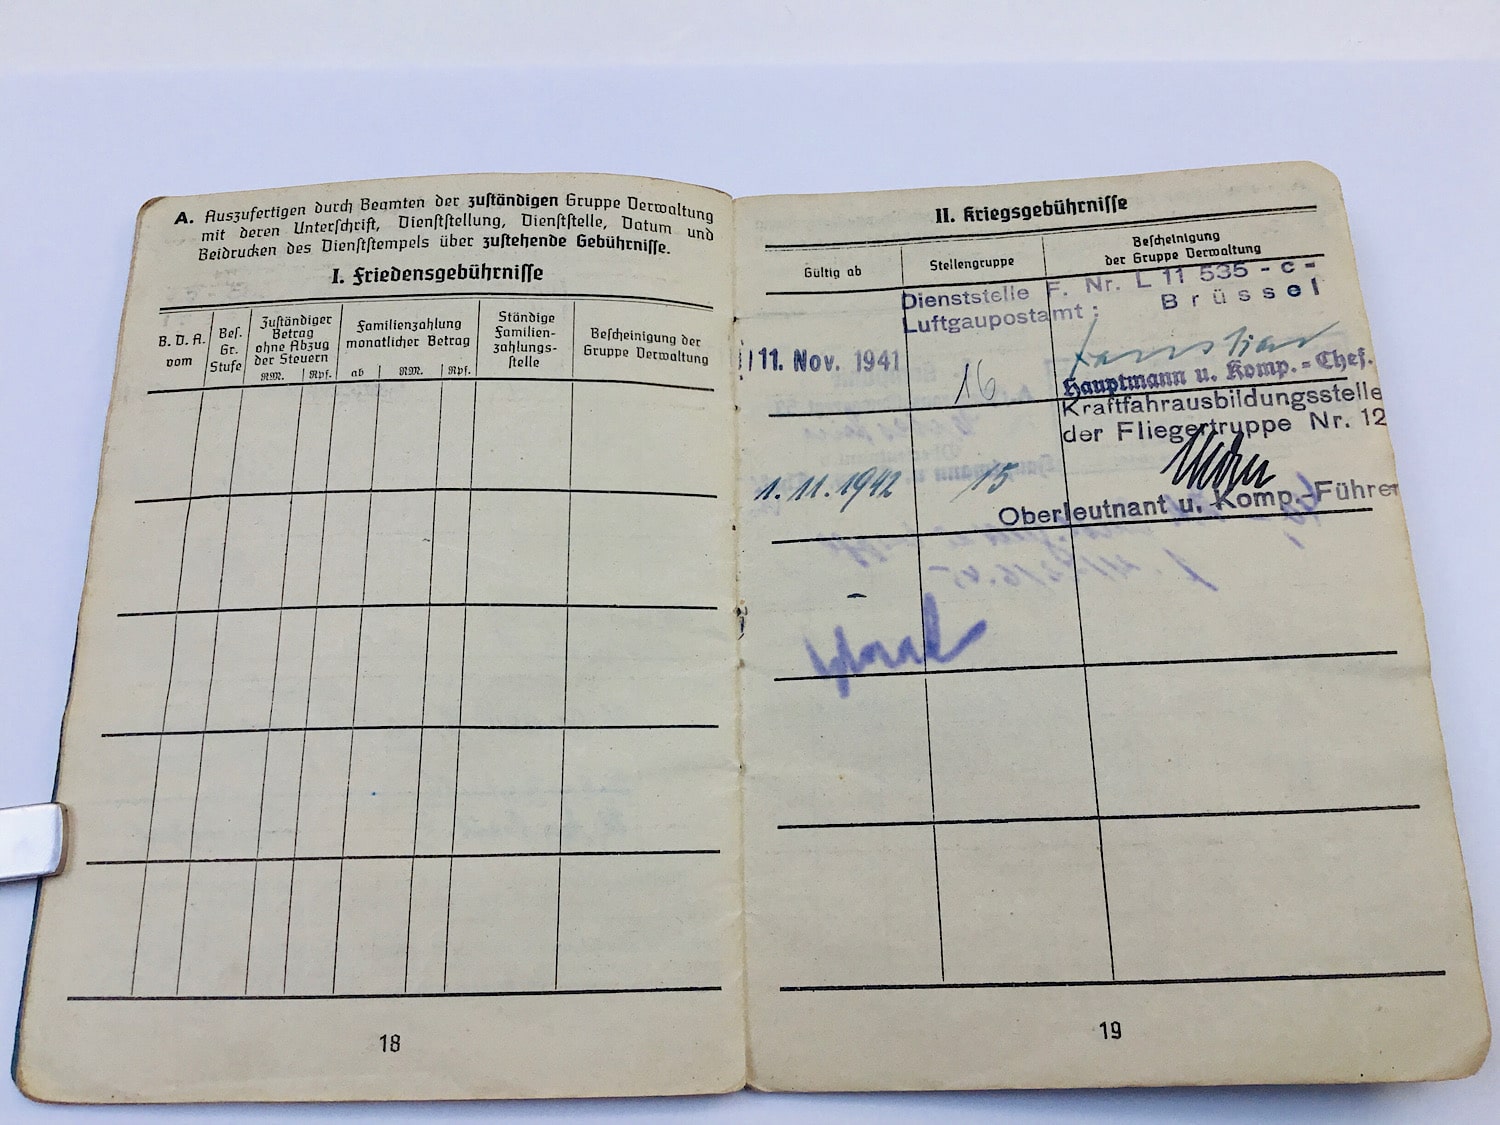 A. Auszufertigen durch Beamten der zuständigen Gruppe Verwaltung
mit deren Unterschrift, Dienststellung, Dienststelle, Datum und
Beidrucken des Dienststempels über zustehende Gebührnisse.
I. Friedensgebührnisse
B. D. A.
vom
Bes.
Gr.
Stufe
Zuständiger
Betrag
ohne Abzug
der Steuern
RM. Rpf.
Familienzahlung
monatlicher Betrag
ab RM. Rpf.
Ständige
Familien-
zahlungs-
stelle
Bescheinigung der
Gruppe Verwaltung
18
II. Kriegsgebührnisse
Gültig ab
Stellengruppe
Bescheinigung
der Gruppe Verwaltung
Dienststelle F. Nr. L 11 535 - c -
Luftgaupostamt : Brüssel
11. Nov. 1941
16
Hauptmann u. Komp.-Chef.
Kraftfahrausbildungsstelle
der Fliegertruppe Nr. 12
1. 11. 1942
15
Oberleutnant u. Komp.-Führer
19